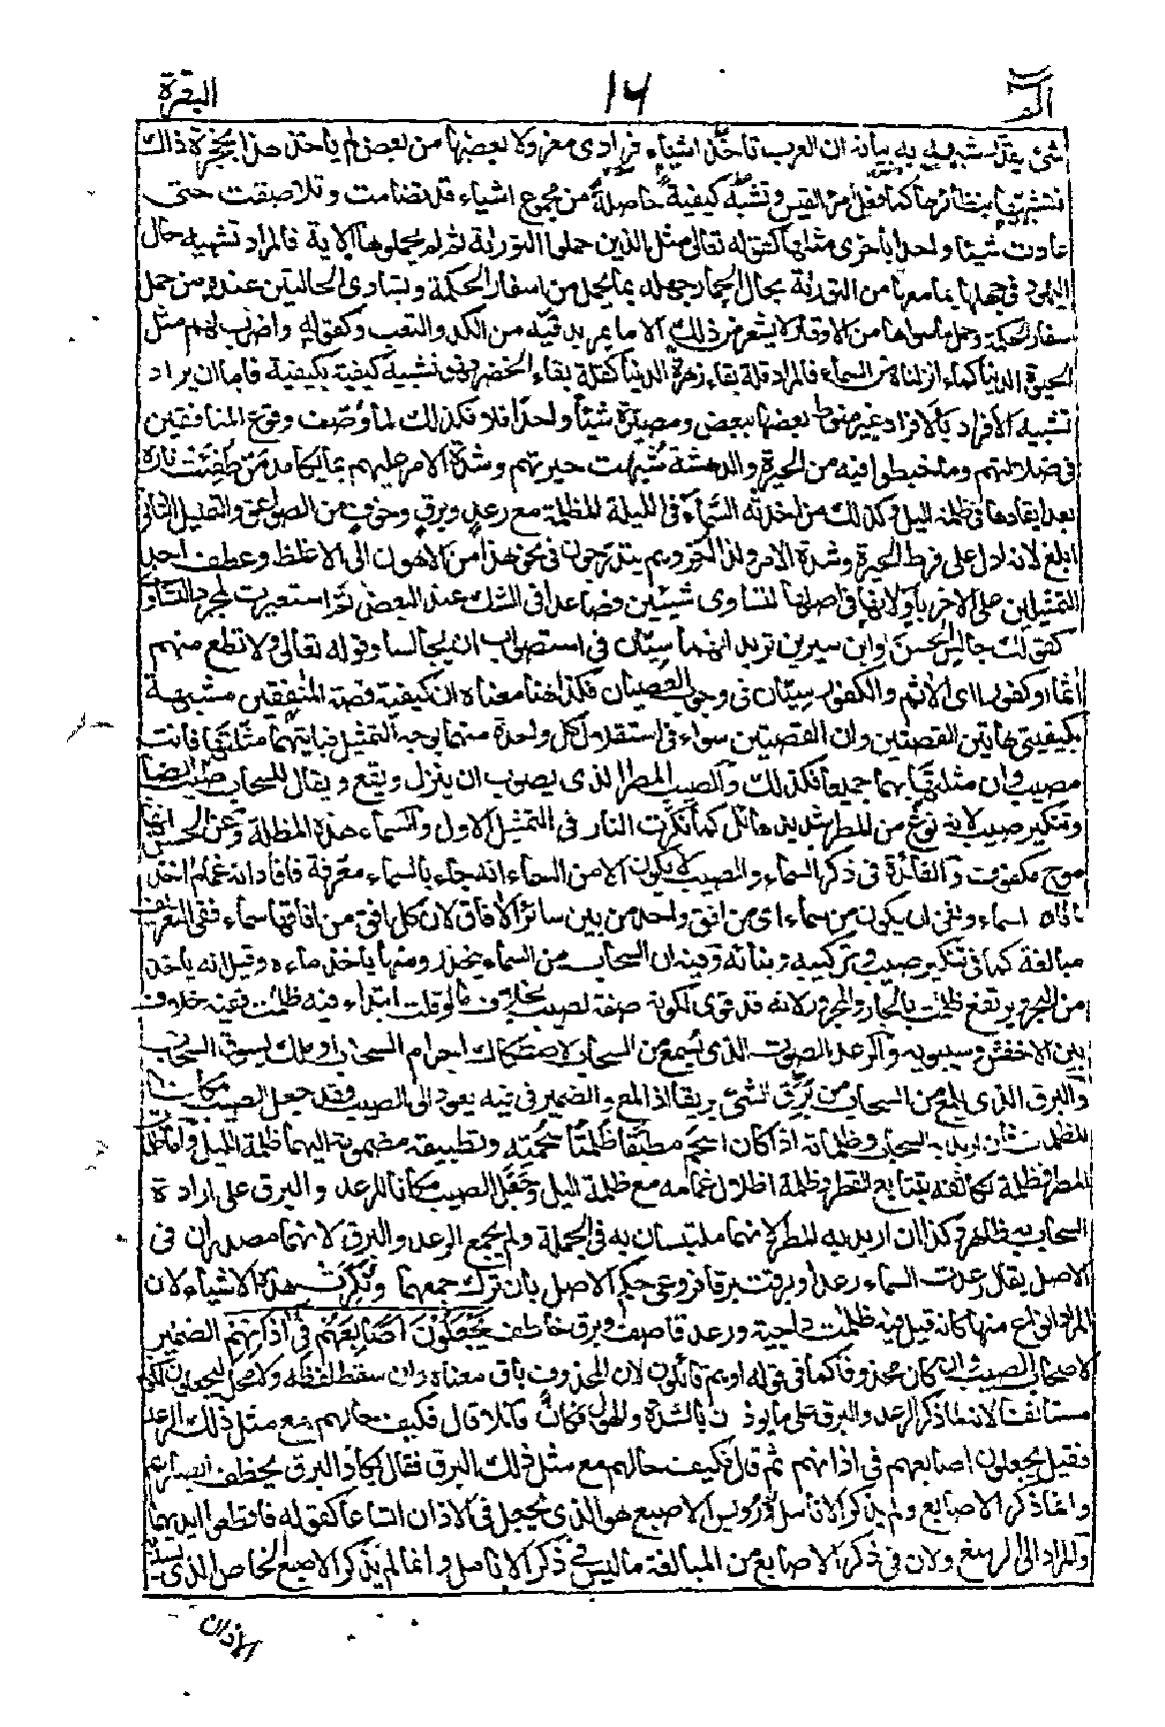 الم ١٦ البقرة
شئ يقدر شبهه به بيانه ان العرب تاخذ اشياء فرادى معزولا بعضها من بعض لم ياخذ هذا بحجزة ذاك
فتشبهها بنظائرها كما فعل امرؤ القيس وتشبه كيفية حاصلة من مجموع اشياء قد تضامت وتلاصقت حتى
عادت شيئا واحدا بأخرى مثلها كقوله تعالى مثل الذين حملوا التورىة ثم لم يحملوها الاية فالمراد تشبيه حال
اليهود في جهلها بما معها من التورىة بحال الحمار في جهله بما يحمل من اسفار الحكمة وتساوى الحالتين عنده من حمل
اسفار الحكمة وحمل ما سواها من الاوقار لا يشعر من ذلك الا ما يمر بدفيه من الكد والتعب وكقوله واضرب لهم مثل
الحيوة الدنيا كماء انزلناه من السماء فالمراد قلة بقاء زهرة الدنيا كقلة بقاء الخضر فهو تشبيه كيفية بكيفية فاما ان يراد
تشبيه الأفراد بالافراد غير منوط بعضها ببعض ومصيرة شيئا واحدا فلا فكذلك لما وصف وقوع المنافقين
في ضلالتهم وما خبطوا فيه من الحيرة والدهشة شبهت حيرتهم وشدة الامر عليهم بما يكابد من طفئت ناره
بعد ايقادها في ظلمة اليل وكذلك من اخذته السماء في الليلة المظلمة مع رعد وبرق وخوف من الصواعق والتمثيل الثانى
ابلغ لانه ادل على فرط الحيرة وشدة الامر ولذا اخر وهم يتدرجون في نحو هذا من الاهون الى الاغلظ وعطف احد
التمثيلين على الاخر باو لانها في اصلها لتساوى شيئين فصاعدا في الشك عند البعض ثم استعيرت لمجرد التساوى
كقولك جالس الحسن او ابن سيرين تريد انهما سيّان في استصواب ان يجالسا وقوله تعالى ولا تطع منهم
اثما او كفورا اى الاثم والكفور سيّان في وجوب العصيان فكذا هنا معناه ان كيفية قصة المنفقين مشبهة
بكيفيتى هاتين القصتين وان القصتين سواء في استقلال كل واحدة منهما بوجه التمثيل فبايتهما مثلتها فانت
مصيب وان مثلتها بهما جميعا فكذلك والصيب المطر الذى يصوب ان ينزل ويقع ويقال للسحاب صيب ايضا
وتنكير صيب لانه نوع من المطر شديد هائل كما نكرت النار في التمثيل الاول والسماء هذه المظلة وعن الحسن انها
موج مكفوف والفائدة في ذكر السماء والصيب لا يكون الا من السماء انه جاء بالسماء معرفة فافاد انه غمام اخذ
بافاق السماء ونفى ان يكون من سماء اى من افق واحد من بين سائر الأفاق لان كل افق من افاقها سماء ففى التعريف
مبالغة كما في تنكير صيب وتركيبه وبنائه وفيه ان السحاب من السماء ينحدر ومنها ياخذ ماءه وقيل انه ياخذ
من البحر ويرتفع ظلمت بالجار والمجرور لانه قد قوى لكونه صفة لصيب بخلاف ما لو قلت ابتداء فيه ظلمت ففيه خلاف
بين الاخفش وسيبويه والرعد الصوت الذى يسمع من السحاب لاصطكاك اجرام السحاب او ملك يسوق السحاب
والبرق الذى يلمع من السحاب من برق الشئ بريقا اذا لمع والضمير في فيه يعود الى الصيب فقد جعل الصيب مكانا
للظلمت فان اريد به السحاب فظلماته اذا كان اسحم مطبقا ظلمتا سحمته وتطبيقه مضمومة اليهما ظلمة اليل واما ظلمة
المطر فظلمة تكاثفه بتتابع القطر وظلمة اظلال غمامه مع ظلمة اليل وجعل الصيب مكانا للرعد والبرق على ارادة
السحاب به ظاهر وكذا ان اريد به المطر لانهما ملتبسان به في الجملة ولم يجمع الرعد والبرق لانهما مصدران في
الاصل يقال رعدت السماء رعدا وبرقت برقا فروعى حكم الاصل بان ترك جمعهما ونكرت هذه الاشياء لان
المراد انواع منها كانه قيل فيه ظلمت داجية ورعد قاصف وبرق خاطف يجعلون اصابعهم في اذانهم الضمير
لاصحاب الصيب وان كان محذوفا كما في قوله اوهم قائلون لان المحذوف باق معناه وان سقط لفظه ولا محل ليجعلون لكونه
مستانفا لانه لما ذكر الرعد والبرق على ما يوذن بالشدة والهول فكان قائلا قال فكيف حالهم مع مثل ذلك الرعد
فقيل يجعلون اصابعهم في اذانهم ثم قال فكيف حالهم مع مثل ذلك البرق فقال يكاد البرق يخطف ابصارهم
وانما ذكر الاصابع ولم يذكر الانامل ورؤس الاصبع هو الذى يجعل في الاذان اتساعا كقوله فاقطعوا ايديهما
والمراد الى الرسغ ولان في ذكر الاصابع من المبالغة ما ليس في ذكر الانامل وانما لم يذكر الاصبع الخاص الذى تسد به
الاذان